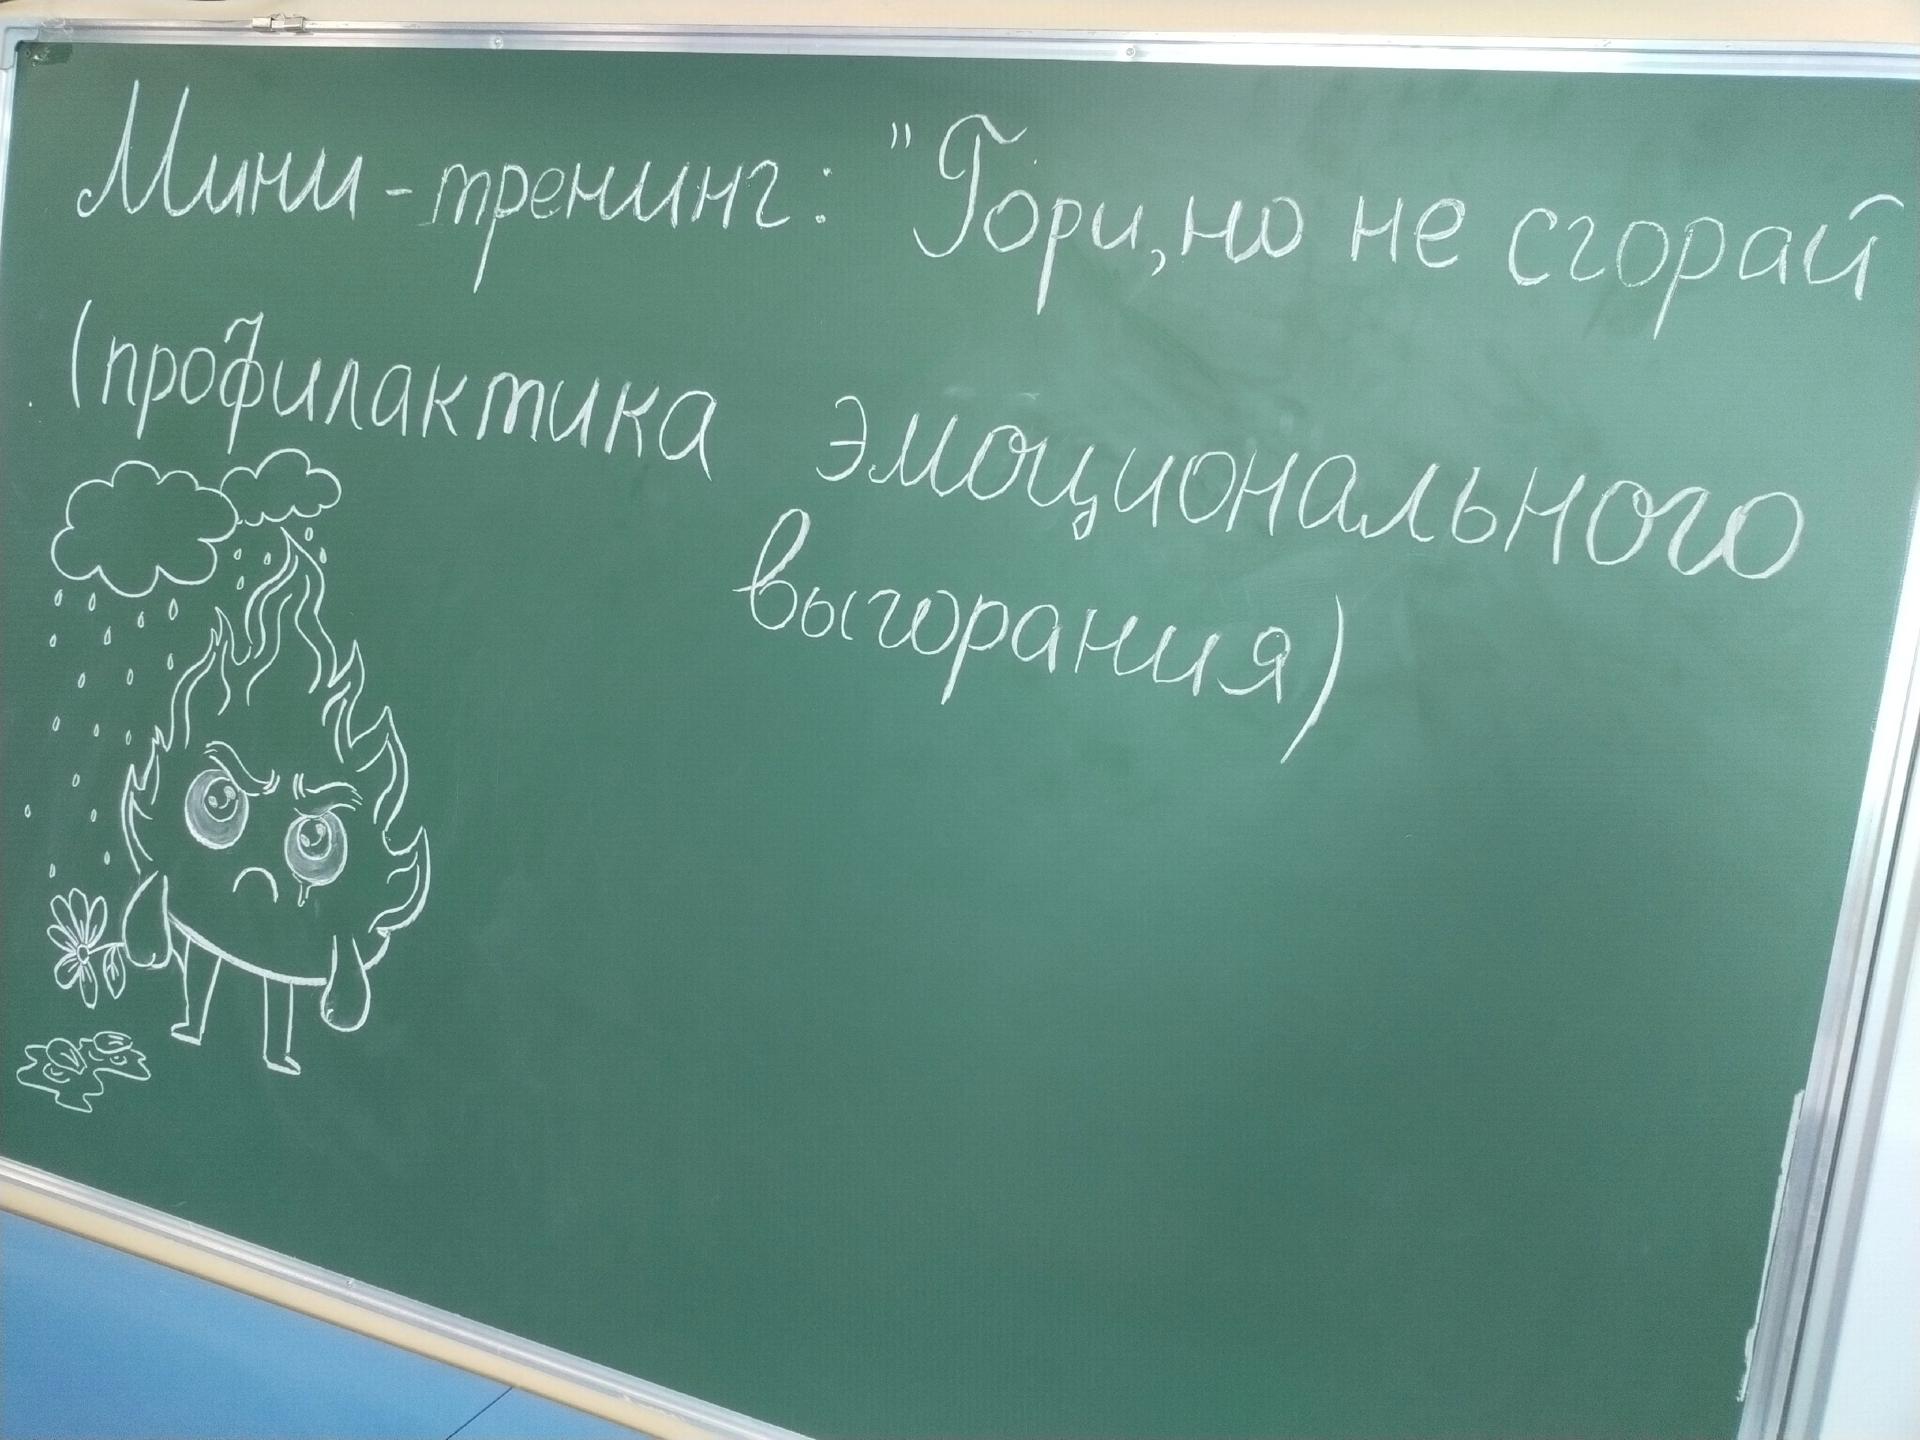 Мини-тренинг: "Гори, но не сгорай
(профилактика эмоционального
выгорания)